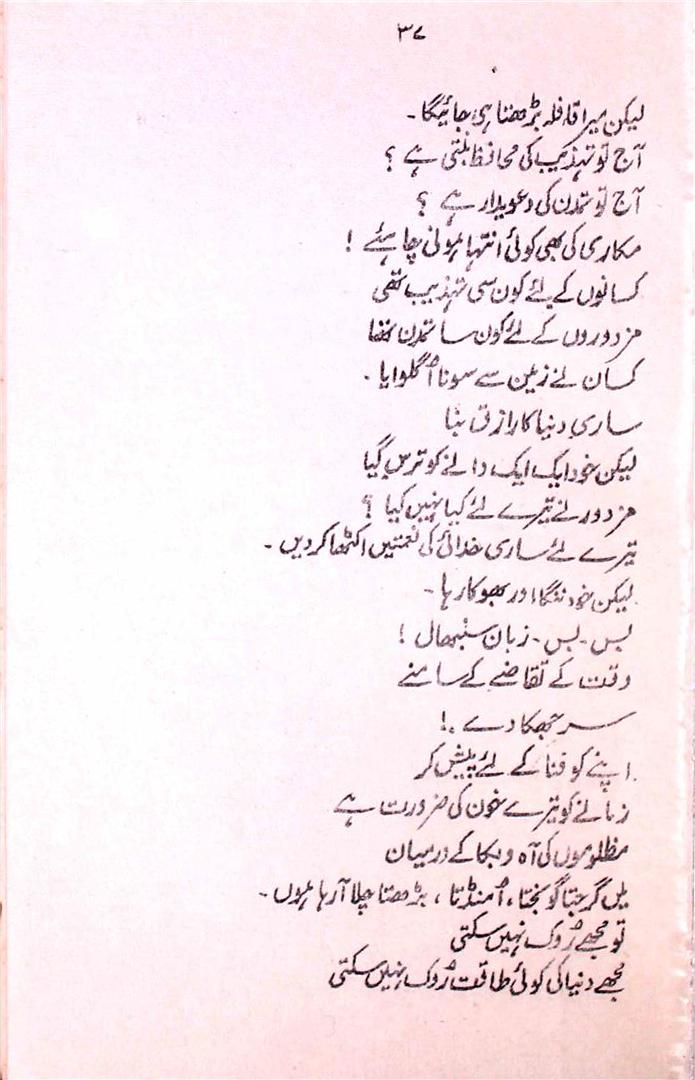 ۳۷
لیکن میرا قافلہ بڑھتا ہی جائیگا۔
آج تو تہذیب کی محافظ بنتی ہے ؟
آج تو تمدن کی دعویدار ہے ؟
مکاری کی بھی کوئی انتہا ہونی چاہئے !
کسانوں کے لئے کون سی تہذیب تھی
مزدوروں کے لئے کون سا تمدن تھا
کسان نے زمین سے سونا اُگلوایا۔
ساری دنیا کا رازق بنا
لیکن خود ایک ایک دانے کو ترس گیا
مزدور نے تیرے لئے کیا نہیں کیا ؟
تیرے لئے ساری خدائی کی نعمتیں اکٹھا کر دیں۔
لیکن خود ننگا اور بھوکا رہا۔
بس۔ بس۔ زبان سنبھال !
وقت کے تقاضے کے سامنے
سر جھکا دے۔!
اپنے کو فنا کے لئے پیش کر
زمانے کو تیرے خون کی ضرورت ہے
مظلوموں کی آہ و بکا کے درمیان
میں گرجتا گونجتا، اُمنڈتا، بڑھتا چلا آ رہا ہوں۔
تو مجھے رُوک نہیں سکتی
مجھے دنیا کی کوئی طاقت رُوک نہیں سکتی